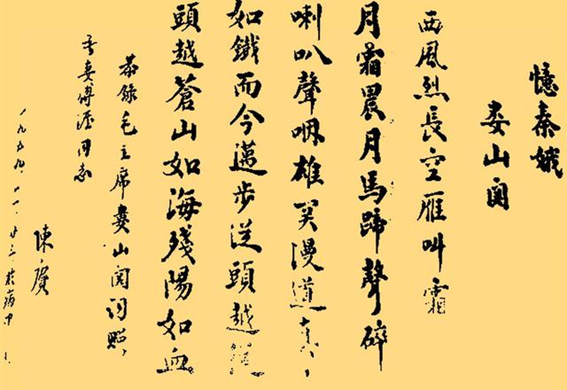 憶秦娥
婁山関
西風烈長空雁叫霜
月霜晨月馬蹄聲碎
喇叭聲咽雄関漫道真
如鐵而今邁步從頭越從
頭越蒼山如海殘陽如血
恭錄毛主席婁山関詞贈
吾妻傅涯同志
陳賡
一九五九.十一.廿三.於病中